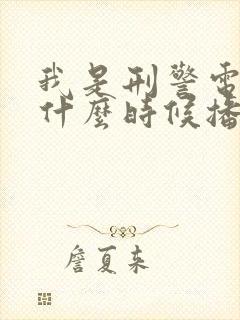 我是刑警電
什麼時候播
詹夏来